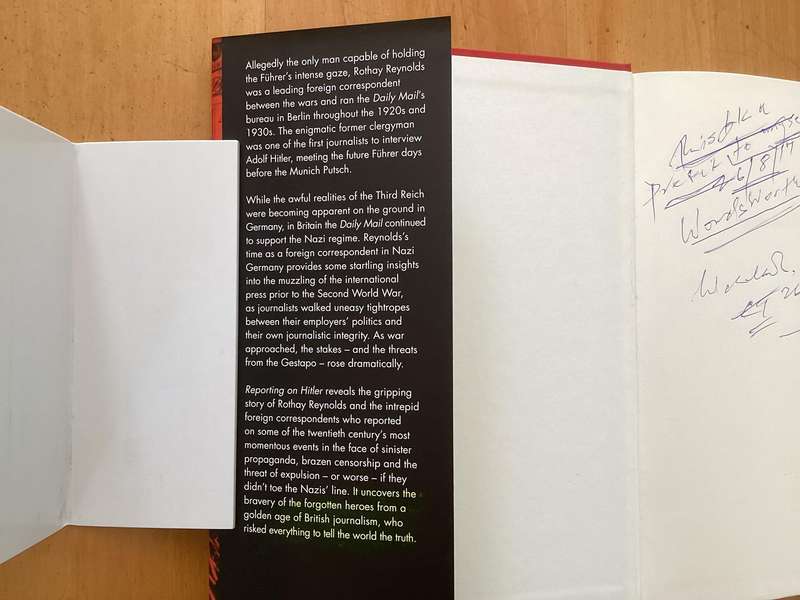 Allegedly the only man capable of holding
the Führer's intense gaze, Rothay Reynolds
was a leading foreign correspondent
between the wars and ran the Daily Mail's
bureau in Berlin throughout the 1920s and
1930s. The enigmatic former clergyman
was one of the first journalists to interview
Adolf Hitler, meeting the future Führer days
before the Munich Putsch.
While the awful realities of the Third Reich
were becoming apparent on the ground in
Germany, in Britain the Daily Mail continued
to support the Nazi regime. Reynolds's
time as a foreign correspondent in Nazi
Germany provides some startling insights
into the muzzling of the international
press prior to the Second World War,
as journalists walked uneasy tightropes
between their employers' politics and
their own journalistic integrity. As war
approached, the stakes – and the threats
from the Gestapo – rose dramatically.
Reporting on Hitler reveals the gripping
story of Rothay Reynolds and the intrepid
foreign correspondents who reported
on some of the twentieth century's most
momentous events in the face of sinister
propaganda, brazen censorship and the
threat of expulsion – or worse – if they
didn't toe the Nazis' line. It uncovers the
bravery of the forgotten heroes from a
golden age of British journalism, who
risked everything to tell the world the truth.
to
26/8/17